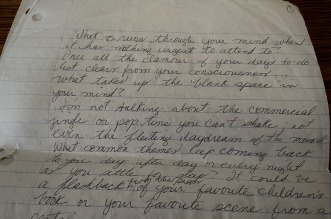 1
What runs through your mind when
it has nothing urgent to attend to?
Once all the clamour of your day's to do
list clears from your consciousness...
what takes up the blank space in
your mind?
I'm not talking about the commercial
jingle or pop tune you can't shake, not
even the fleeting daydream of the moment.
What common themes keep coming back
to you day after day or every night
as you settle to sleep? It could be
a flashback of your favorite children's
book or your favorite scene from